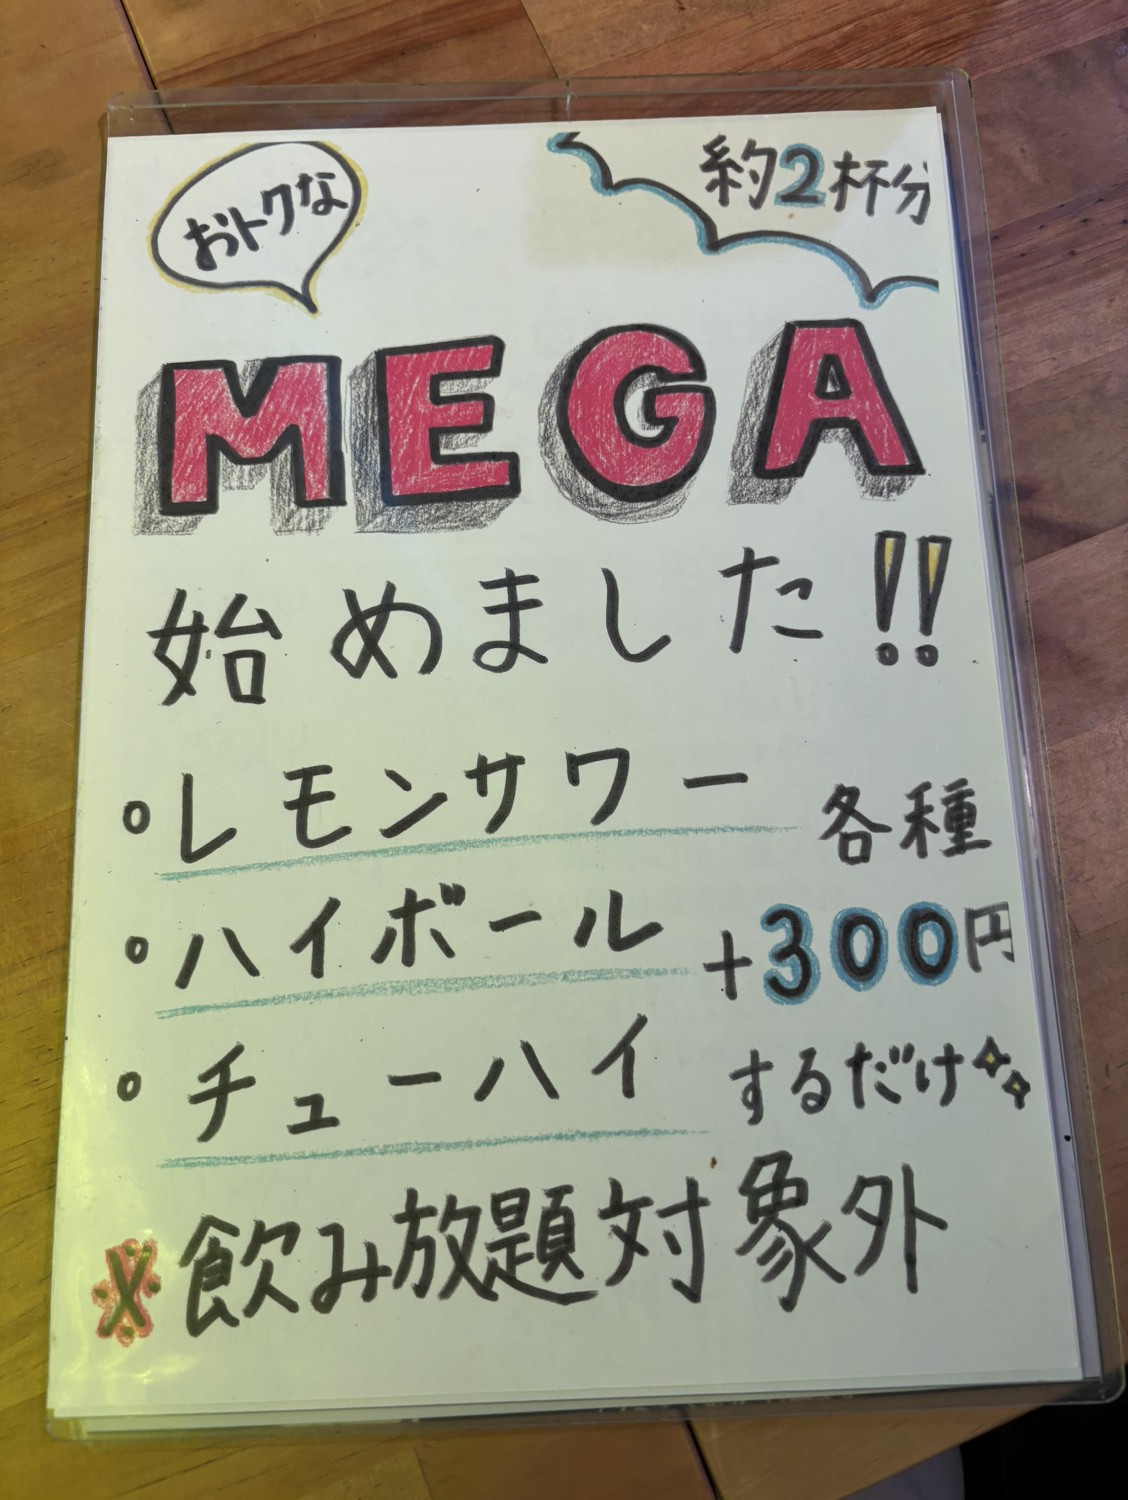 おトクな
約2杯分
MEGA
始めました!!
・レモンサワー
・ハイボール
・チューハイ
各種
+300円
するだけ
※飲み放題対象外